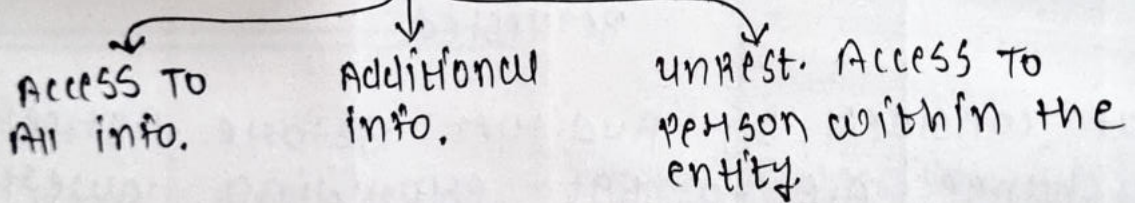 Access To
All info.
Additional
info.
unrest. Access to
person within the
entity.